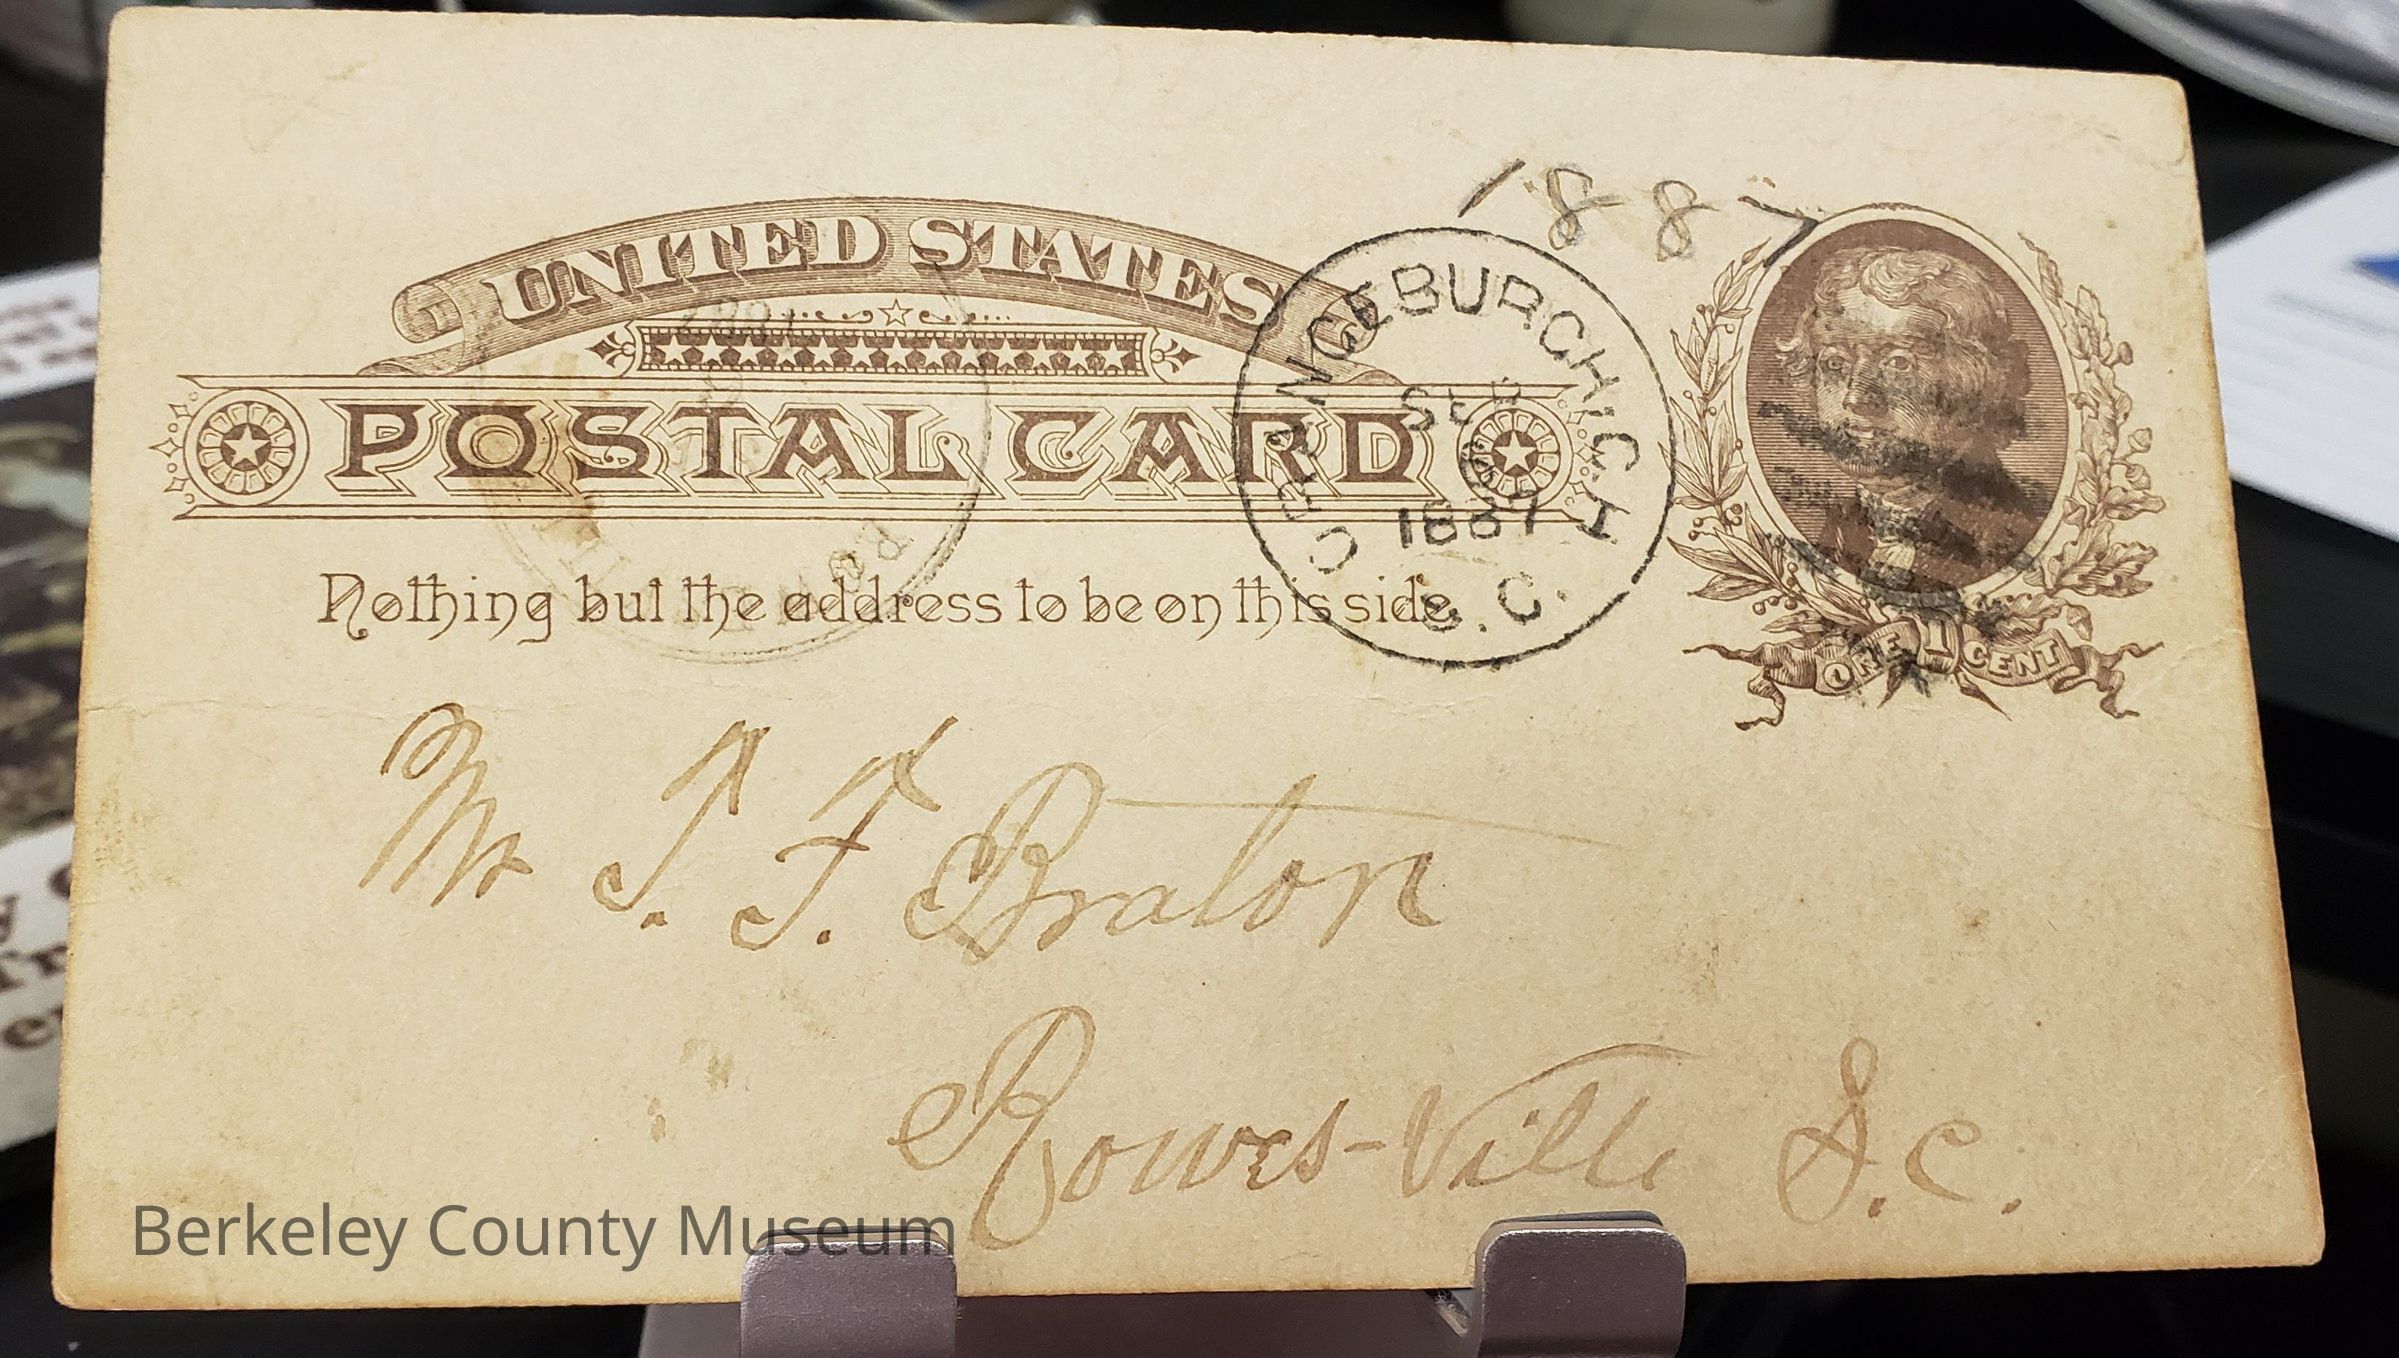 1887
UNITED STATES
POSTAL CARD
ORANGEBURGH. C. H
SEP
1887
S. C.
ONE 1 CENT
Nothing but the address to be on this side.
Mr T. F. Braton
Rowes-Ville S.C.
Berkeley County Museum